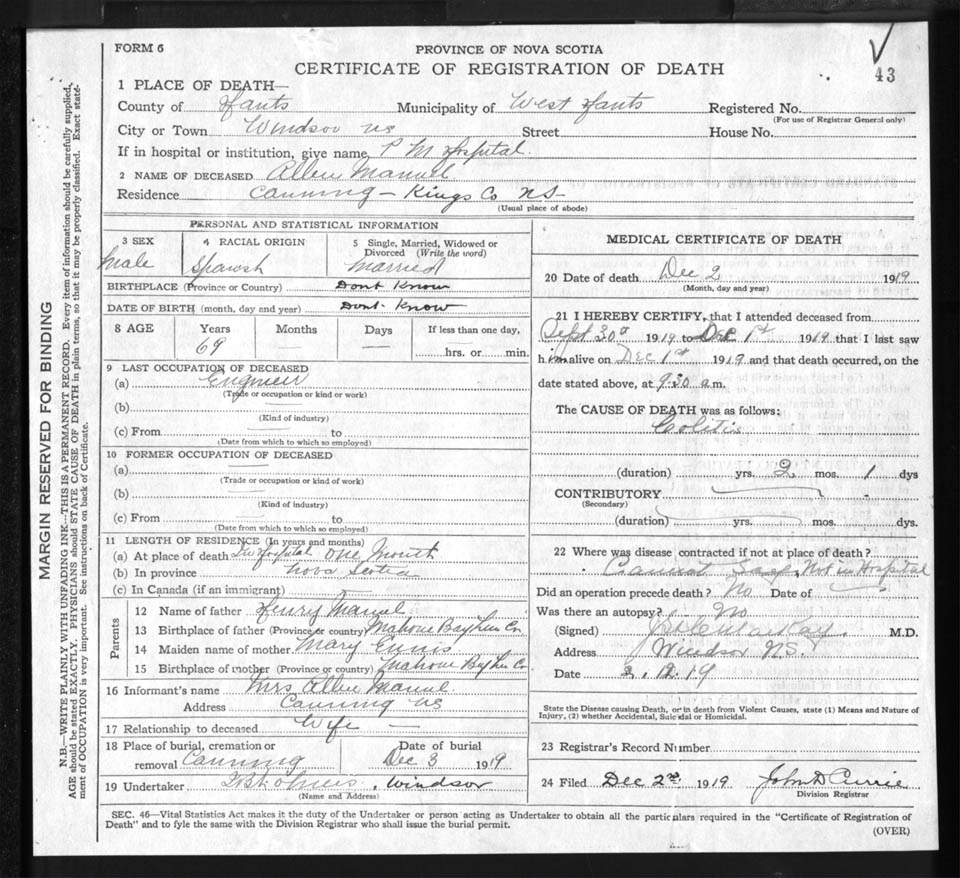 FORM 6
PROVINCE OF NOVA SCOTIA
CERTIFICATE OF REGISTRATION OF DEATH
43
1 PLACE OF DEATH—
County of Hants Municipality of West Hants Registered No.
(For use of Registrar General only)
City or Town Windsor NS Street House No.
If in hospital or institution, give name P M Hospital.
2 NAME OF DECEASED Allen Manuel
Residence Canning — Kings Co NS
(Usual place of abode)
PERSONAL AND STATISTICAL INFORMATION
3 SEX
Male
4 RACIAL ORIGIN
Spanish
5 Single, Married, Widowed or Divorced (Write the word)
Married
BIRTHPLACE (Province or Country) Dont Know
DATE OF BIRTH (month, day and year) Dont Know
8 AGE Years Months Days If less than one day,
69 — — hrs. or min.
9 LAST OCCUPATION OF DECEASED
(a) Engineer
(Trade or occupation or kind or work)
(b)
(Kind of industry)
(c) From to
(Date from which to which so employed)
10 FORMER OCCUPATION OF DECEASED
(a)
(Trade or occupation or kind of work)
(b)
(Kind of industry)
(c) From to
(Date from which to which so employed)
11 LENGTH OF RESIDENCE (In years and months)
(a) At place of death In Hospital One Month
(b) In province Nova Scotia
(c) In Canada (if an immigrant)
Parents
12 Name of father Henry Manuel
13 Birthplace of father (Province or country) Mahone Bay Lun Co
14 Maiden name of mother Mary Ennis
15 Birthplace of mother (Province or country) Mahone Bay Lun Co
16 Informant's name Mrs Allen Manuel
Address Canning NS
17 Relationship to deceased Wife
18 Place of burial, cremation or removal Canning
Date of burial
Dec 3 1919
19 Undertaker Windsor
(Name and Address)
MEDICAL CERTIFICATE OF DEATH
20 Date of death Dec 2 1919
(Month, day and year)
21 I HEREBY CERTIFY, that I attended deceased from
Sept 30th 1919 to Dec 1st 1919 that I last saw
him alive on Dec 1st 1919 and that death occurred, on the
date stated above, at 9:30 a.m.
The CAUSE OF DEATH was as follows:
Colitis
(duration) yrs. 2 mos. 1 dys
CONTRIBUTORY
(Secondary)
(duration) yrs. mos. dys.
22 Where was disease contracted if not at place of death?
Cannot say, Not in Hospital
Did an operation precede death? No Date of
Was there an autopsy? No
(Signed) M.D.
Address Windsor N.S.
Date 2.12.19
State the Disease causing Death, or in death from Violent Causes, state (1) Means and Nature of
Injury, (2) whether Accidental, Suicidal or Homicidal.
23 Registrar's Record Number
24 Filed Dec 2nd 1919 John D Currie
Division Registrar
SEC. 46—Vital Statistics Act makes it the duty of the Undertaker or person acting as Undertaker to obtain all the particulars required in the "Certificate of Registration of
Death" and to fyle the same with the Division Registrar who shall issue the burial permit.
(OVER)
MARGIN RESERVED FOR BINDING
N.B.—WRITE PLAINLY WITH UNFADING INK—THIS IS A PERMANENT RECORD. Every item of information should be carefully supplied,
AGE should be stated EXACTLY. PHYSICIANS should STATE CAUSE OF DEATH in plain terms, so that it may be properly classified. Exact state-
ment of OCCUPATION is very important. See instructions on back of Certificate.